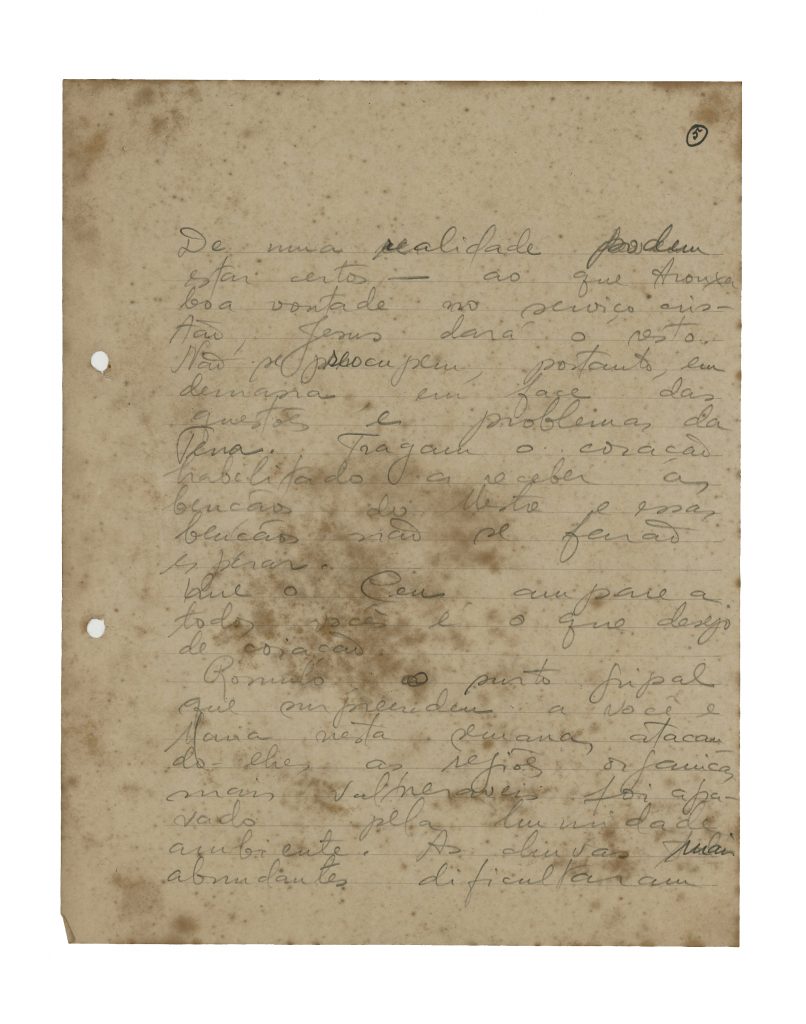 5
De uma realidade podem
estar certos — ao que trouxer
boa vontade no serviço cris-
tão, Jesus dará o resto.
Não se preocupem, portanto, em
demasia em face das
questões e problemas da
Terra. Tragam o coração
habilitado a receber as
bençãos do Mestre e essas
bençãos não se farão
esperar.
Que o Ceu ampare a
todos vocês é o que desejo
de coração
Rômulo o surto gripal
que surpreendeu a você e
Maria nesta semana, atacan
do-lhes as regiões organicas
mais vulneraveis foi agra-
vado pela humidade
ambiente. As chuvas mais
abundantes dificultaram